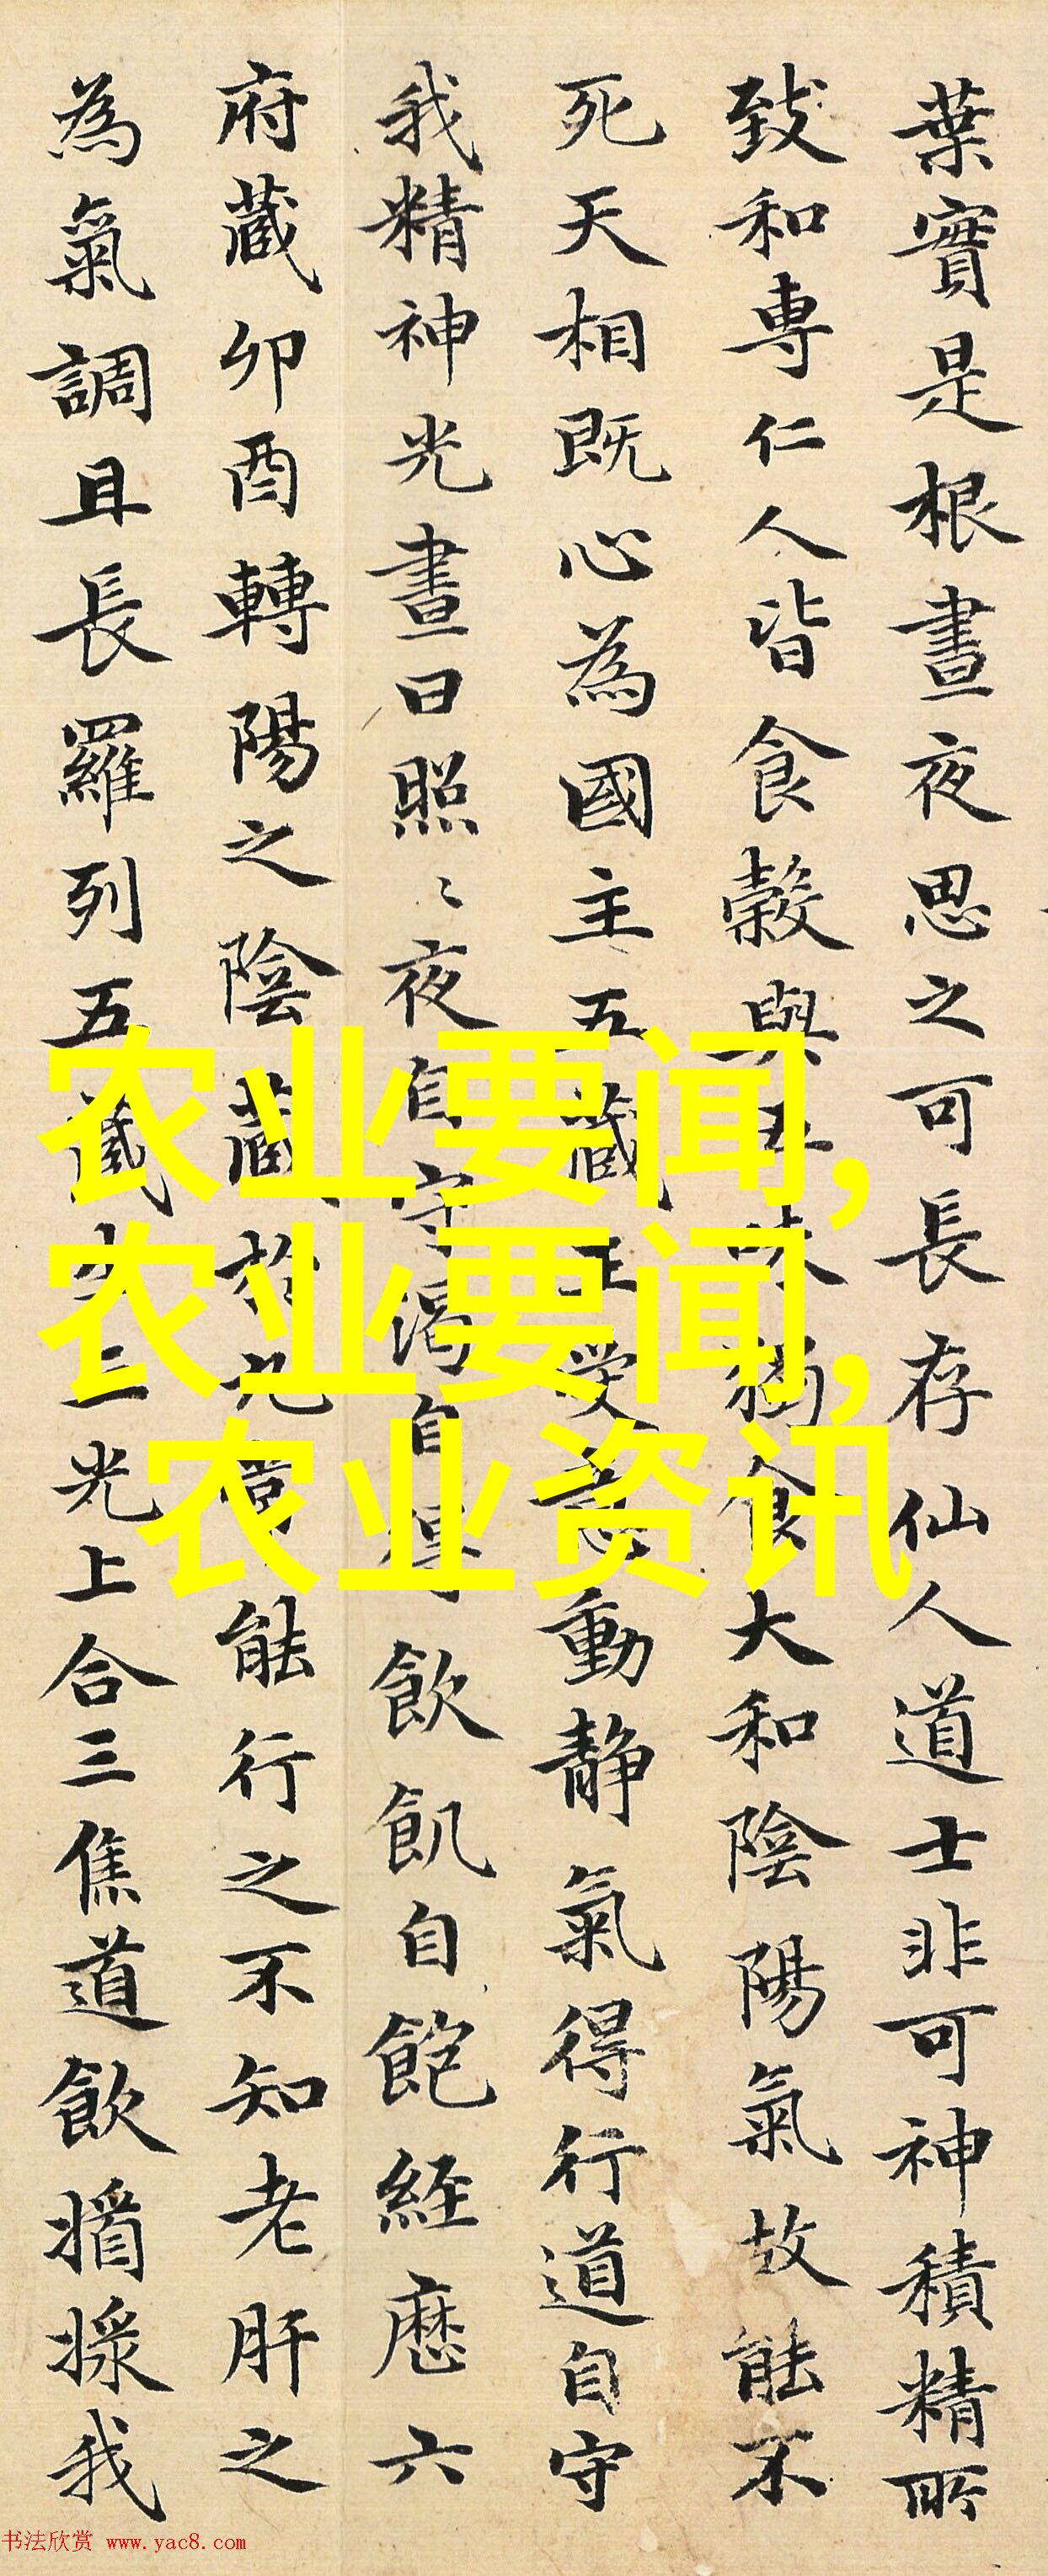 葉實是根晝夜思之可長存仙人道士非可神積精所
致和專仁人皆食穀與五味獨食大和陰陽氣故能不
死天相既心為國主五藏王受意動静氣得行道自守
我精神光晝日照〻夜自守渴自得飲飢自飽經歷六
府藏卯酉轉陽之陰藏於九常能行之不知老肝之
為氣調且長羅列五藏生三光上合三焦道飲漿我
农业要闻,
农业要闻,
农业资讯
书法欣赏 www.yac8.com